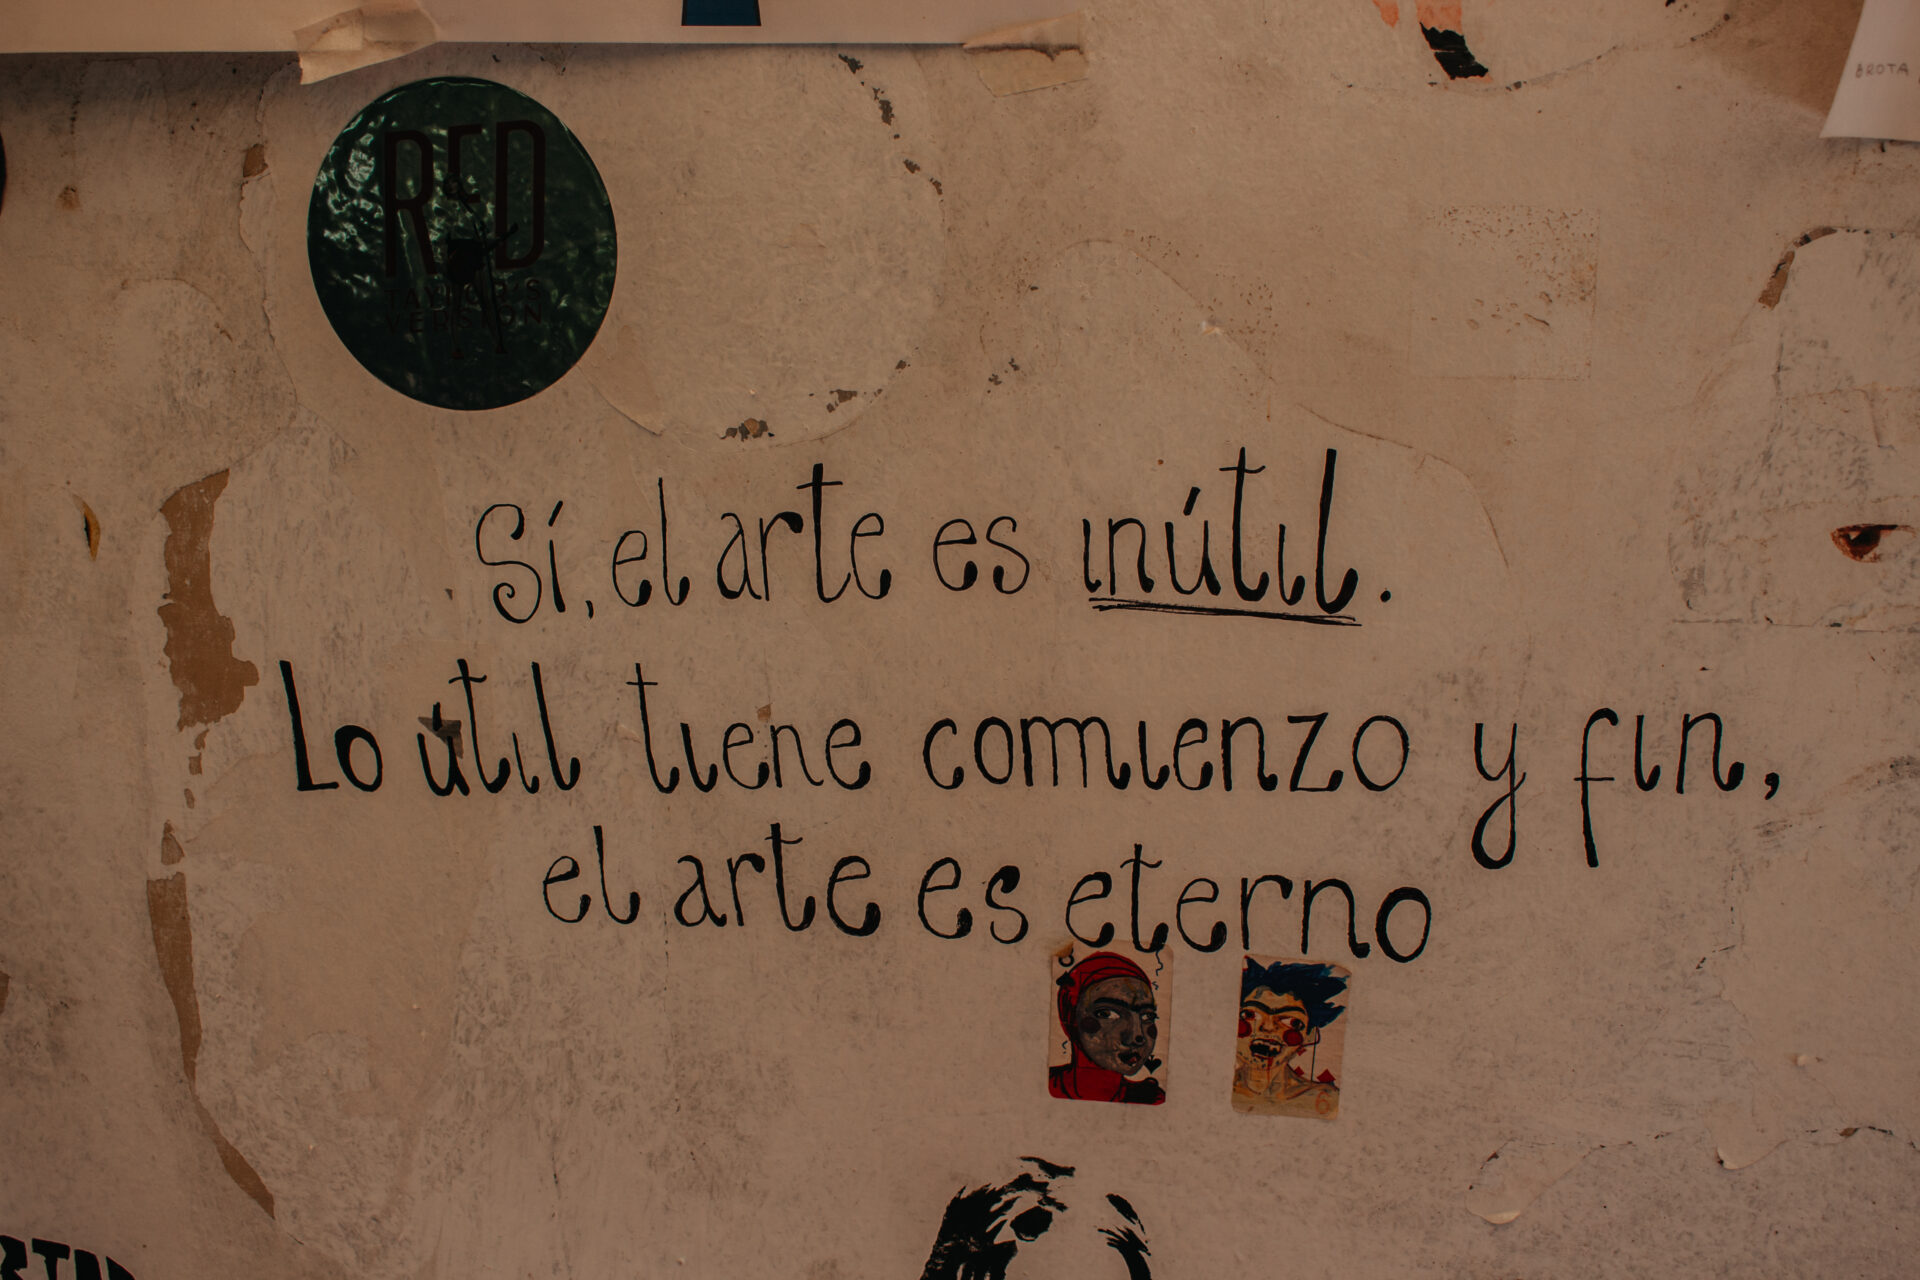 BROTA
RED
TAYLOR'S
VERSION
Sí, el arte es inútil.
Lo útil tiene comienzo y fin,
el arte es eterno
Q
6